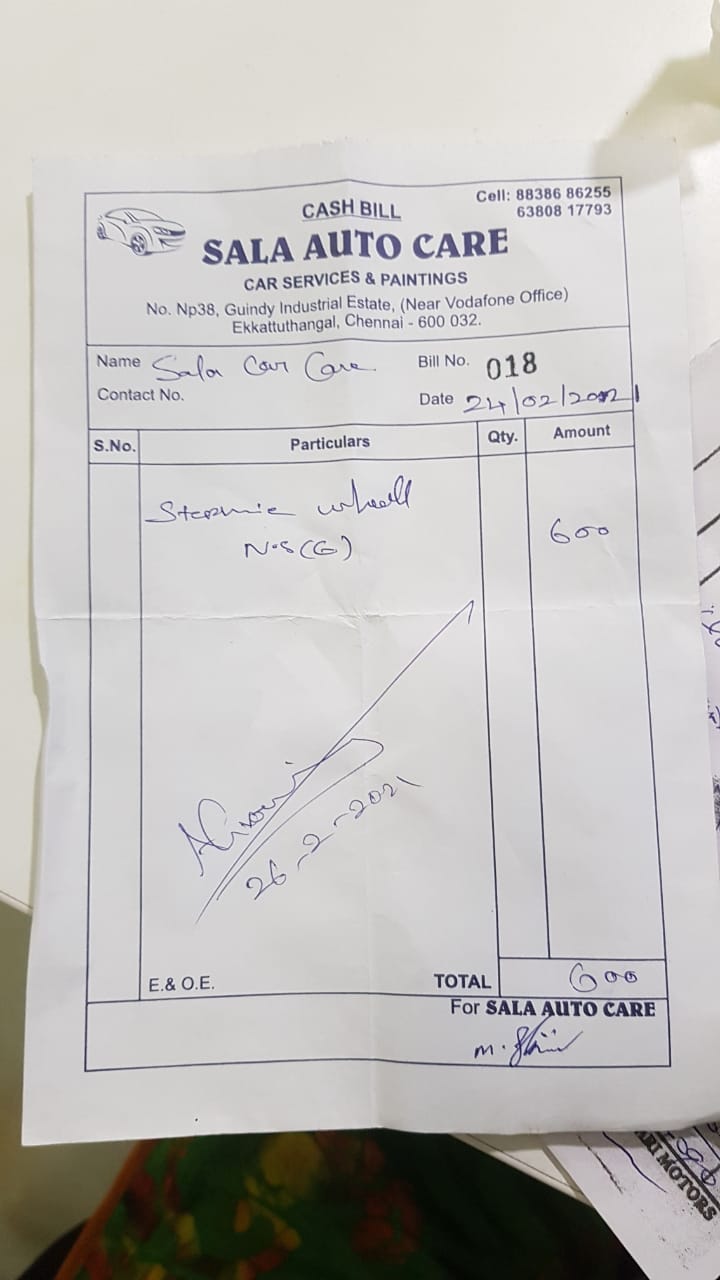 CASH BILL
Cell: 88386 86255
63808 17793
SALA AUTO CARE
CAR SERVICES & PAINTINGS
No. Np38, Guindy Industrial Estate, (Near Vodafone Office)
Ekkattuthangal, Chennai - 600 032.
Name Sala Car Care Bill No. 018
Contact No. Date 24/02/2021
S.No. Particulars Qty. Amount
wheell 600
N.S(G)
26-2-2021
E.& O.E. TOTAL 600
For SALA AUTO CARE
ARI MOTORS